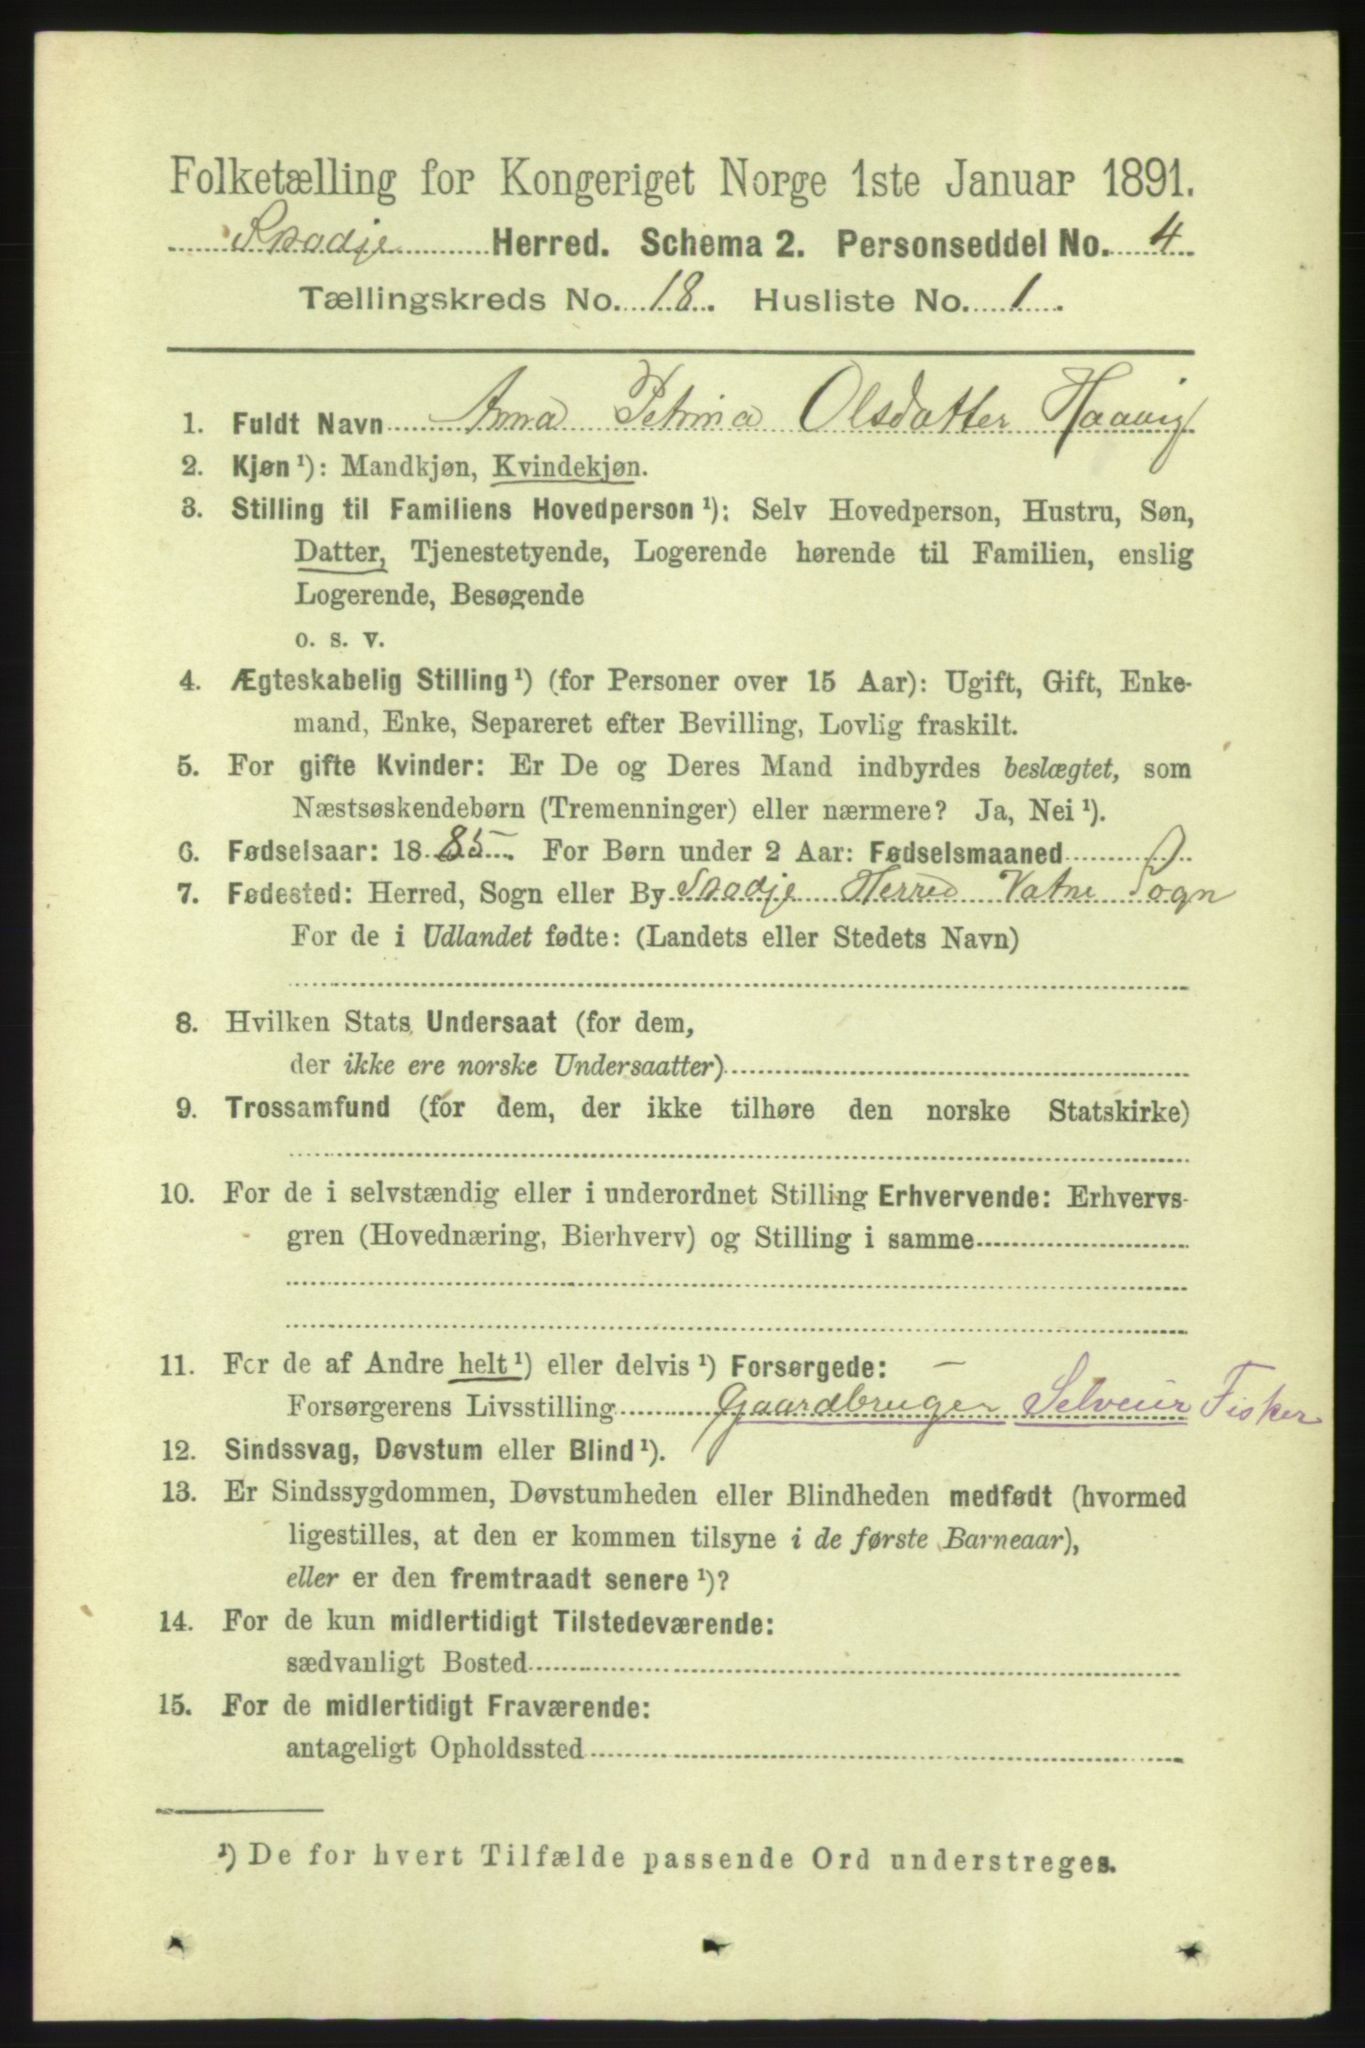 Folketælling for Kongeriget Norge 1ste Januar 1891.
Skodje Herred. Schema 2. Personseddel No. 4
Tællingskreds No. 18. Husliste No. 1.
1. Fuldt Navn Anna Petrina Olsdatter Haavig
2. Kjøn ¹): Mandkjøn, Kvindekjøn.
3. Stilling til Familiens Hovedperson ¹): Selv Hovedperson, Hustru, Søn,
Datter, Tjenestetyende, Logerende hørende til Familien, enslig
Logerende, Besøgende
o. s. v.
4. Ægteskabelig Stilling ¹) (for Personer over 15 Aar): Ugift, Gift, Enke-
mand, Enke, Separeret efter Bevilling, Lovlig fraskilt.
5. For gifte Kvinder: Er De og Deres Mand indbyrdes beslægtet, som
Næstsøskendebørn (Tremenninger) eller nærmere? Ja, Nei ¹).
6. Fødselsaar: 1885. For Børn under 2 Aar: Fødselsmaaned
7. Fødested: Herred, Sogn eller By Skodje Herred Vatne Sogn
For de i Udlandet fødte: (Landets eller Stedets Navn)
8. Hvilken Stats Undersaat (for dem,
der ikke ere norske Undersaatter)
9. Trossamfund (for dem, der ikke tilhøre den norske Statskirke)
10. For de i selvstændig eller i underordnet Stilling Erhvervende: Erhvervs-
gren (Hovednæring, Bierhverv) og Stilling i samme
11. For de af Andre helt ¹) eller delvis ¹) Forsørgede:
Forsørgerens Livsstilling Gaardbruger Selveier Fisker
12. Sindssvag, Døvstum eller Blind ¹).
13. Er Sindssygdommen, Døvstumheden eller Blindheden medfødt (hvormed
ligestilles, at den er kommen tilsyne i de første Barneaar),
eller er den fremtraadt senere ¹)?
14. For de kun midlertidigt Tilstedeværende:
sædvanligt Bosted
15. For de midlertidigt Fraværende:
antageligt Opholdssted
¹) De for hvert Tilfælde passende Ord understreges.